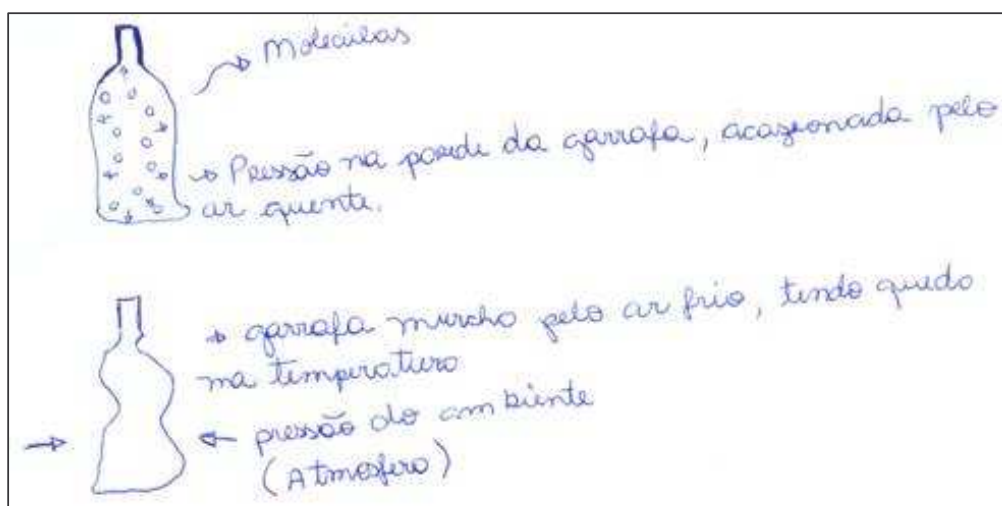 Moleculas
Pressão na parede da garrafa, acasionada pelo
ar quente.
garrafa murcho pelo ar frio, tendo quedo
na temperaturo
pressão do ambiente
(Atmosfero)